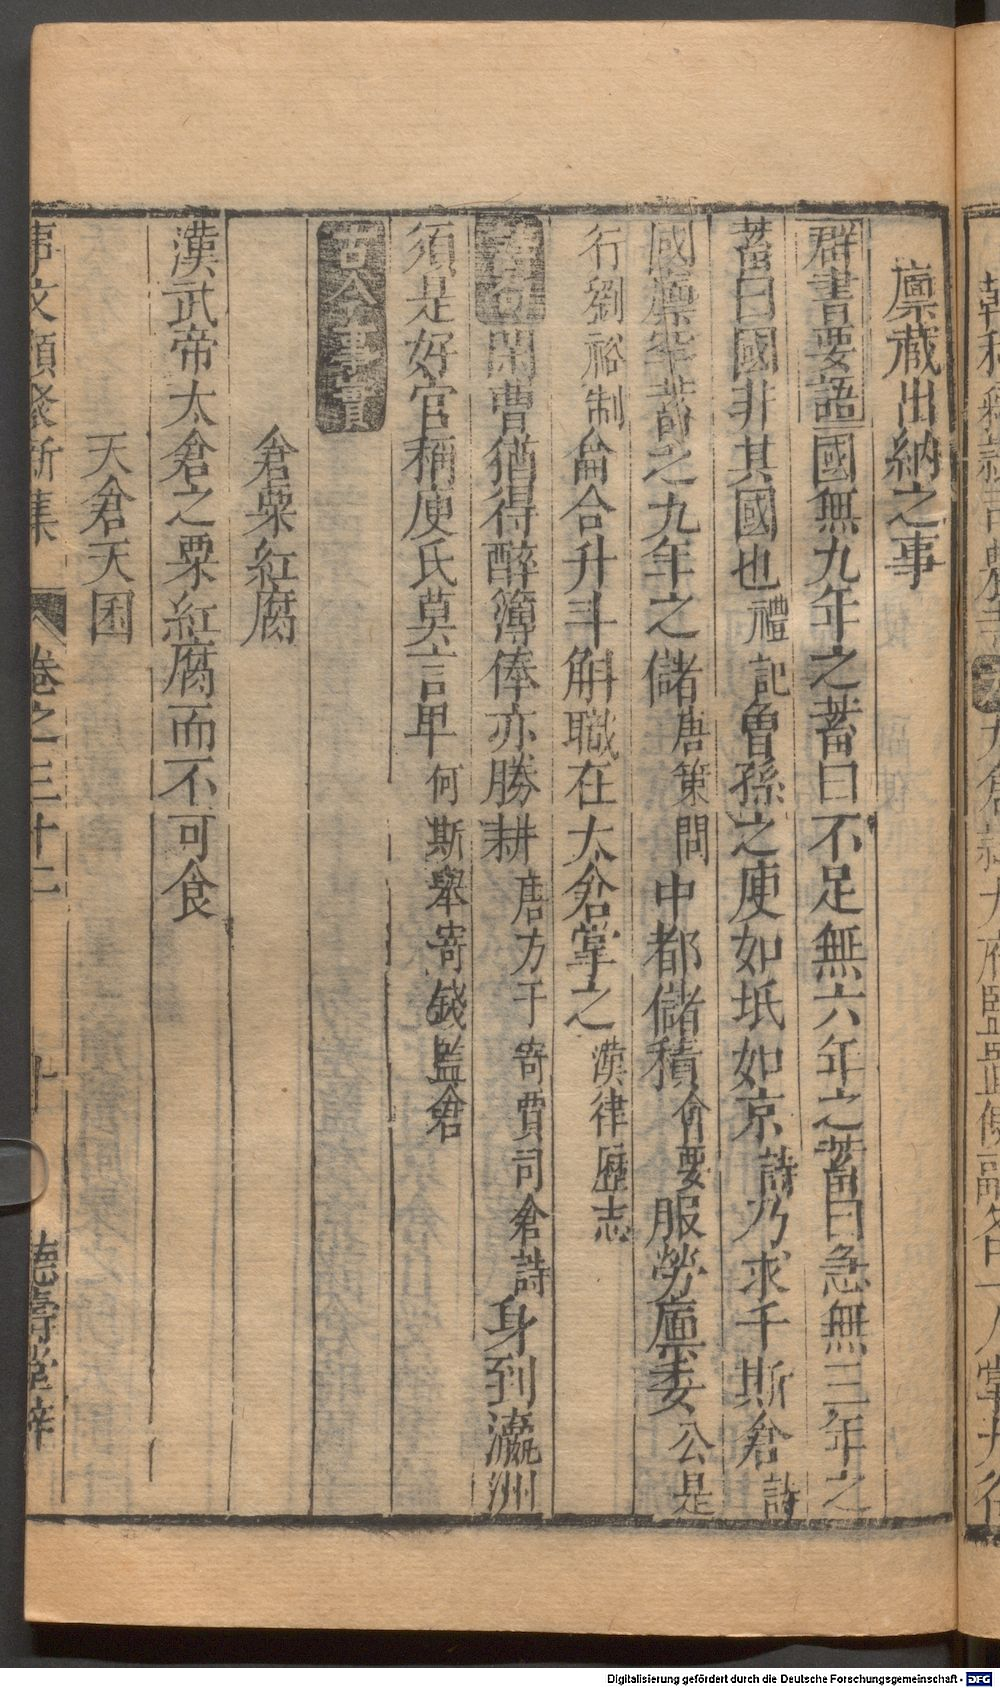 廪藏出納之事
群書要語國無九年之蓄曰不足無六年之蓄曰急無三年之
蓄曰國非其國也禮記魯孫之庾如坻如京詩乃求千斯倉詩
國廪罕蓄之九年之儲唐策問中都儲積會要服勞廪委公是
行劉裕制侖合升斗斛職在太倉掌之漢律歷志
詩句閑曹猶得醉簿俸亦勝耕唐方干寄賈司倉詩身到瀛洲
須是好官稱庾氏莫言卑何斯舉寄錢監倉
古今事實
倉粟紅腐
漢武帝太倉之粟紅腐而不可食
天倉天囷
事文類聚新集 卷之三十二 十 德壽堂梓
Digitalisierung gefördert durch die Deutsche Forschungsgemeinschaft - DFG